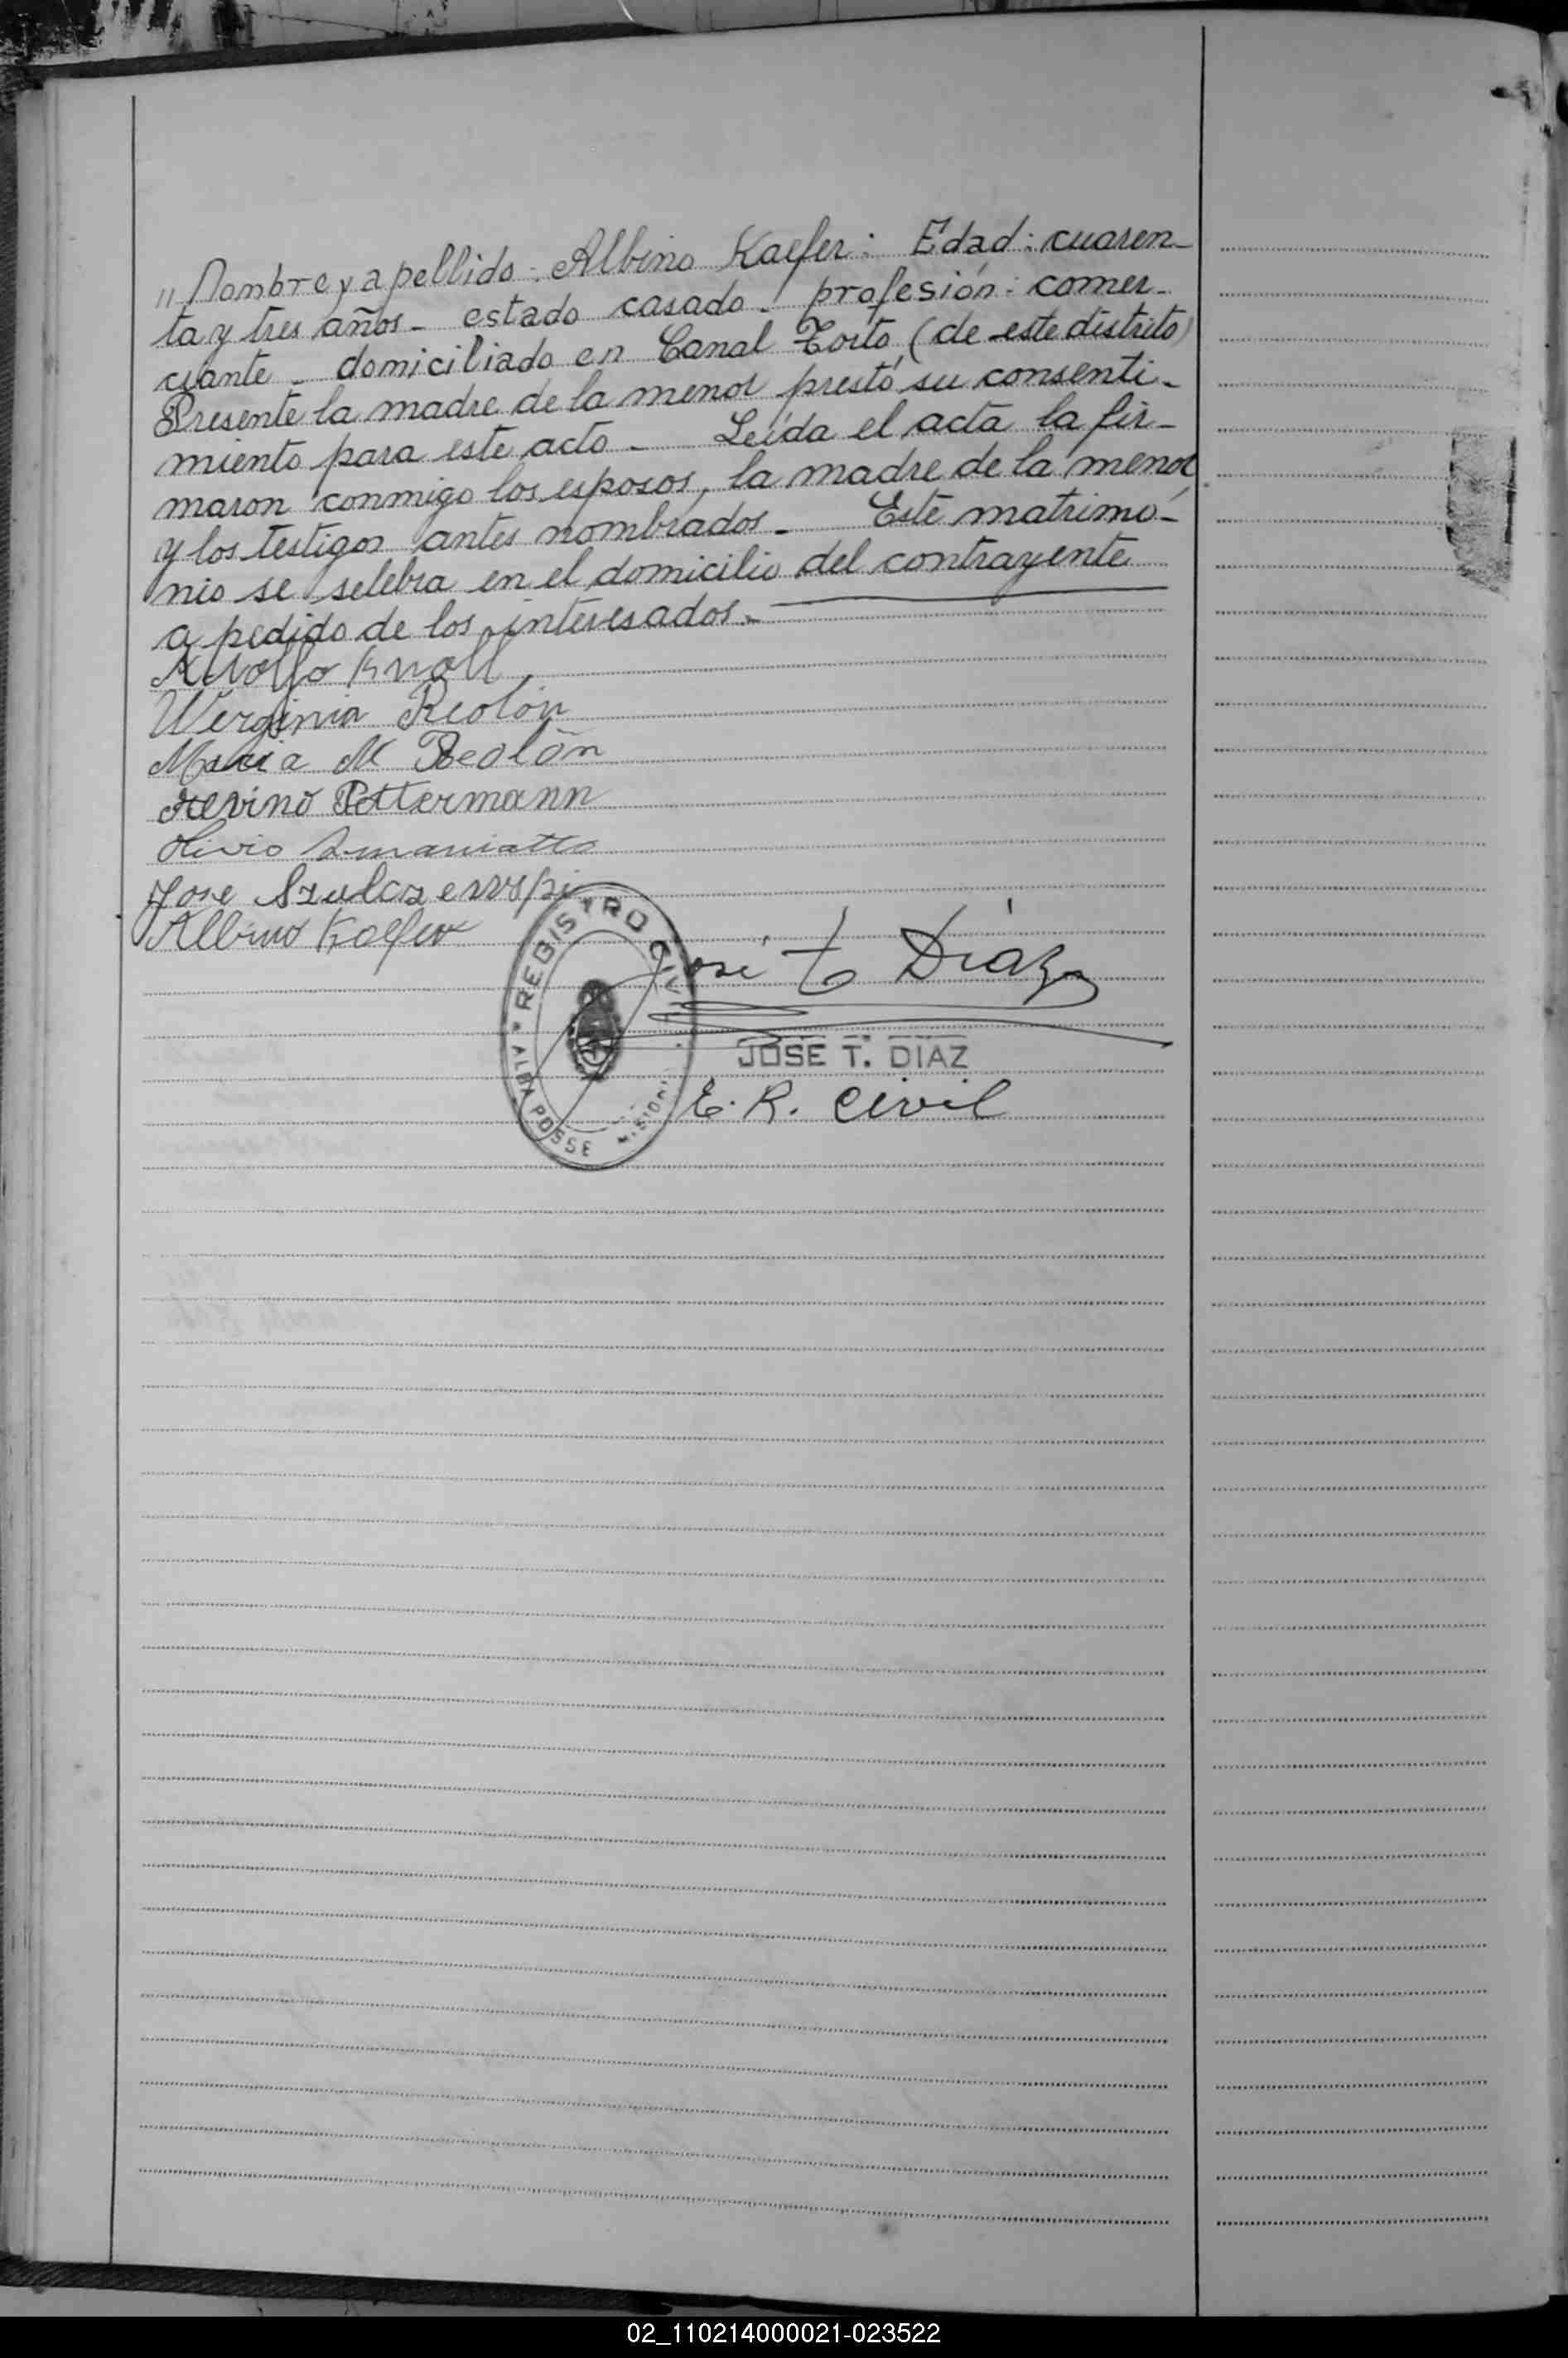 " Nombre y apellido: Albino Kaefer: Edad: cuaren-
ta y tres años - estado casado - profesión: comer-
ciante - domiciliado en Canal Torto (de este distrito)
Presente la madre de la menor prestó su consenti-
miento para este acto - Leída el acta la fir-
maron conmigo los esposos, la madre de la menor
y los testigos antes nombrados - Este matrimo-
nio se selebra en el domicilio del contrayente
a pedido de los interesados -
Adolfo Knoll
Werginia Reolón
Maria M Reolón
Pettermann
Olivio
Jose
Albino Kaefer
REGISTRO CIVIL
ALBA POSSE MISIONES
José T Díaz
JOSE T. DIAZ
E. R. Civil
02_110214000021-023522